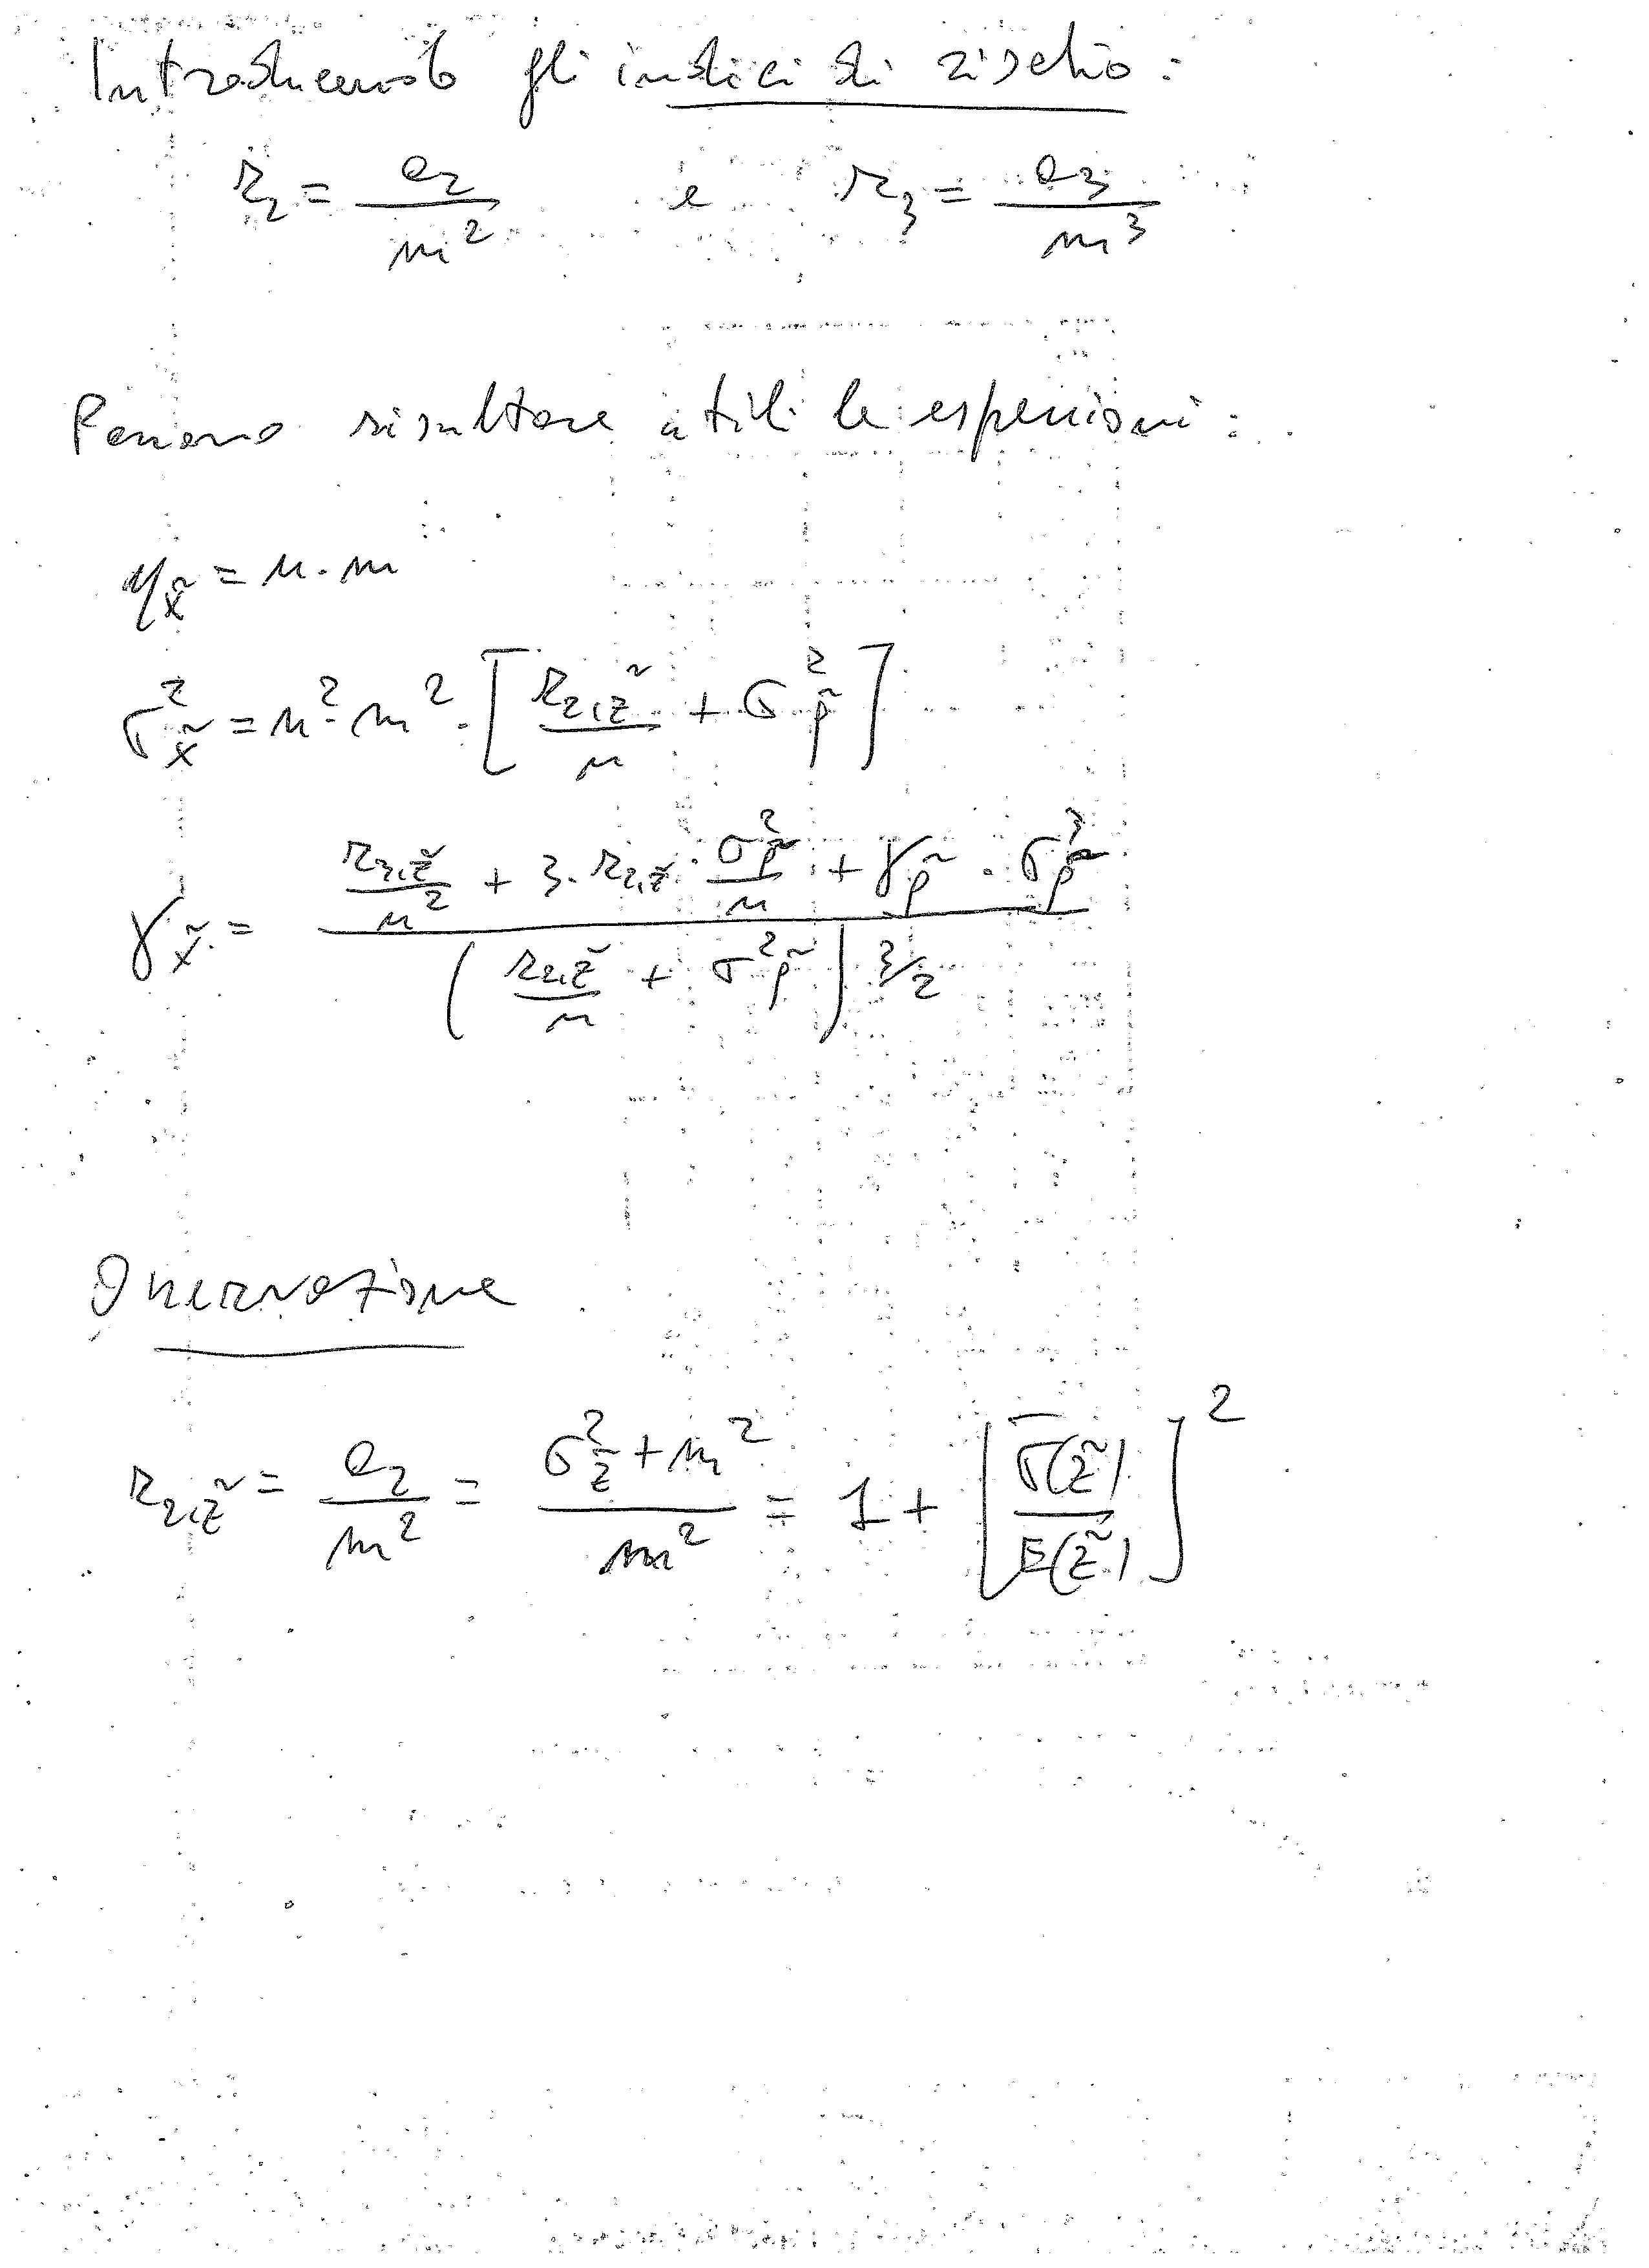 Introducendo gli indici di rischio:
r₂ = a₂ / m² e r₃ = a₃ / m³
Possono risultare utili le espressioni:
μ_x̃ = n · m
σ²_x̃ = n² · m² · [ r₂,z̃ / n + σ²_ρ̃ ]
γ_x̃ = ( r₃,z̃ / n² + 3 · r₂,z̃ · σ²_ρ̃ / n + γ_ρ̃ · σ³_ρ̃ ) / ( r₂,z̃ / n + σ²_ρ̃ )^(3/2)
Osservazione
r₂,z̃ = a₂ / m² = (σ²_z̃ + m²) / m² = 1 + [ σ(z̃) / E(z̃) ]²